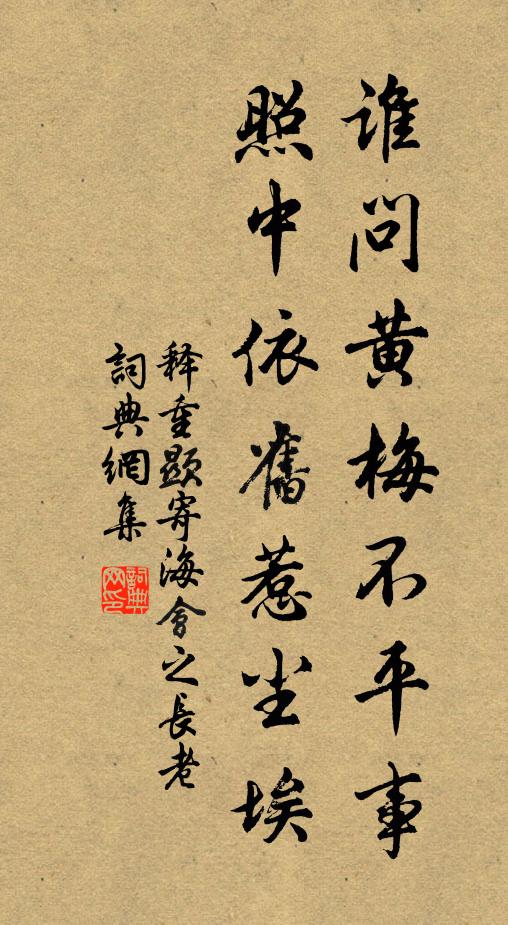 誰問黄梅不平事
照中依舊惹尘埃
释重顯寄海會之長老
詞典網集
詞典網印